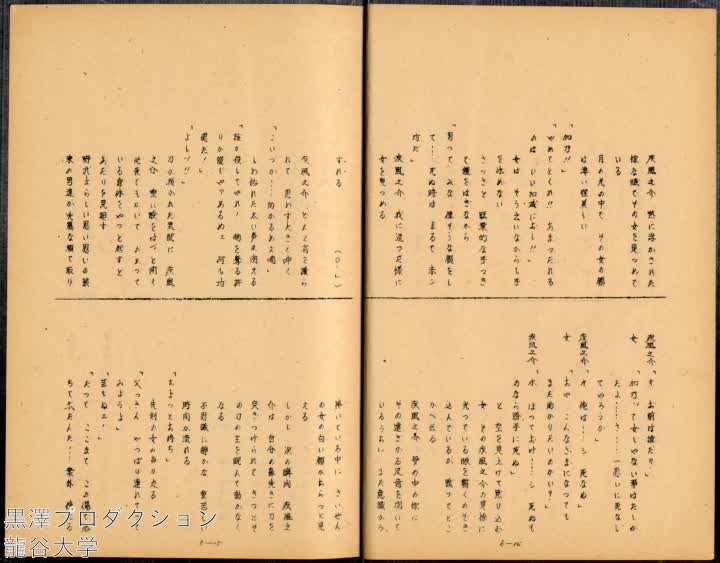 疾風之介　熱に浮かされた
様な眼でその女を見つめて
いる
月の光の中で　その女の顔
は凄い程美しい
「加乃!!」
「やめてくれ!!　あまったれる
のは　いい加減によし!!」
女は　そう云いながらも手
を休めない
さっさと　職業的な手つき
て鎧をはぎながら
「男って　みな　偉そうな顔をし
て…　死ぬ時は　まるで　赤ン
坊だ」
疾風之介　我に返った様に
女を見つめる
疾風之介「オ　お前は誰だ？」
女
「加乃って女じゃない事はたしか
だよ……さ……一思いに死なし
てやろうか」
疾風之介「オ　俺は…シ　死なぬ」
女　「おや　こんなざまになっても
まだ助かりたいのかい？」
疾風之介「ホ　ほっておけ……シ　死ぬも
のなら勝手に死ぬ」
と　空を見上げて黙り込む
女　その疾風之介の異様に
光っている眼を暫くのぞき
込んでいるが　黙ってとこ
かへ去る
疾風之介　夢の中の様に
その遠ざかる足音を聞いて
いるうちに　また意識がう
すれる
（O・L）
疾風之介　どんと肩を蹴ら
れて　思わず大きく呻く
「こいつか…助かるめえ喃」
しわ枯れた太い声が聞える
「誰が殺してやれ！　物を奪る許
りが能じゃアあるめェ　何も功
徳だ！」
「よしッ!!」
刀の抜かれた気配に　疾風
之介　重い瞼をはっと開く
せ
いる身体をやっと起すと
あたりを見廻す
野武士らしい思い思いの装
束の男達が兇悪な顔で取り
捲いている中に　さいぜん
の女の白い顔がちらっと見
える
しかし　次の瞬間　疾風之
介は　自分の鼻先きに刀を
突きつけられて　きっとそ
の刀の主を睨んで動かなく
なる
不思議に静かな　重苦しい
時間が流れる
「ちょっとお待ち」
先刻の女の声が走る
「父っさん　やっぱり連れてって
みようよ」
「言もねェ！」
「だって　ここまで　この湯
ちてたんだ……案外
6—16
6—15
黒澤プロダクション
龍谷大学